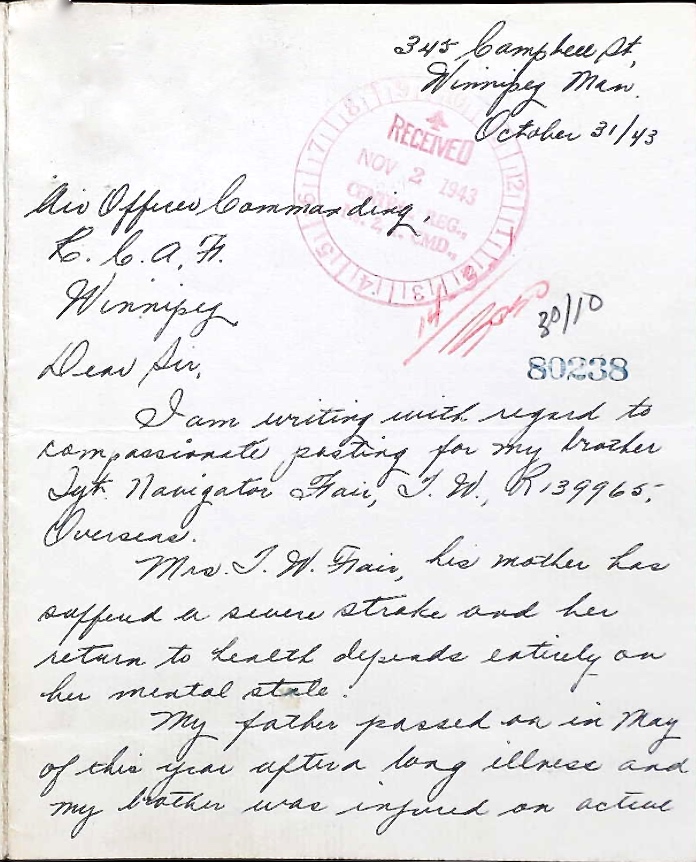 345 Campbell St,
Winnipeg Man.
October 31/43
RECEIVED
NOV 2 1943
REG.,
CMD.,
Air Officer Commanding,
R. C. A. F.
Winnipeg
Dear Sir,
30/10
80238
I am writing with regard to
compassionate posting for my brother
Sgt. Navigator Fair, T. W., R139965,
Overseas.
Mrs. T. W. Fair, his mother has
suffered a severe stroke and her
return to health depends entirely on
her mental state.
My father passed on in May
of this year after a long illness and
my brother was injured on active